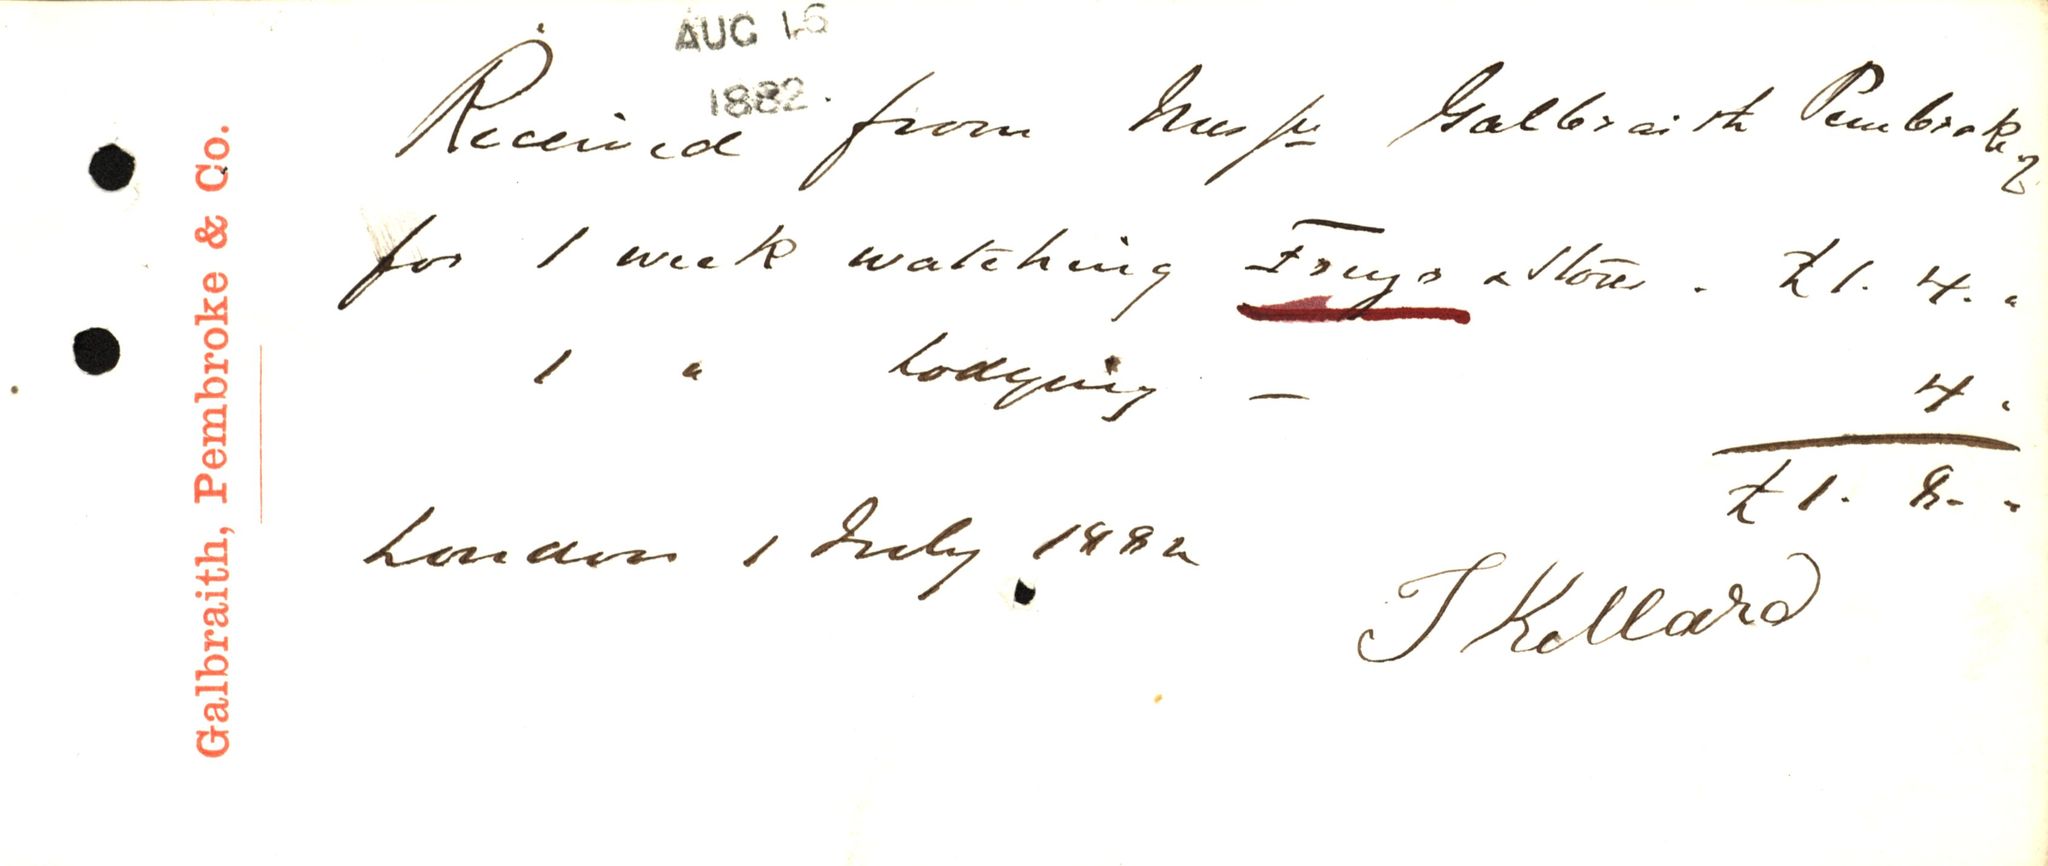 Galbraith, Pembroke & Co.
AUG 15
1882.
Received from Messrs Galbraith Pembroke
for 1 week watching stores . £1. 4. "
1 " Lodging — 4 .
£1. 8. .
London 1 July 1882
J Kellard